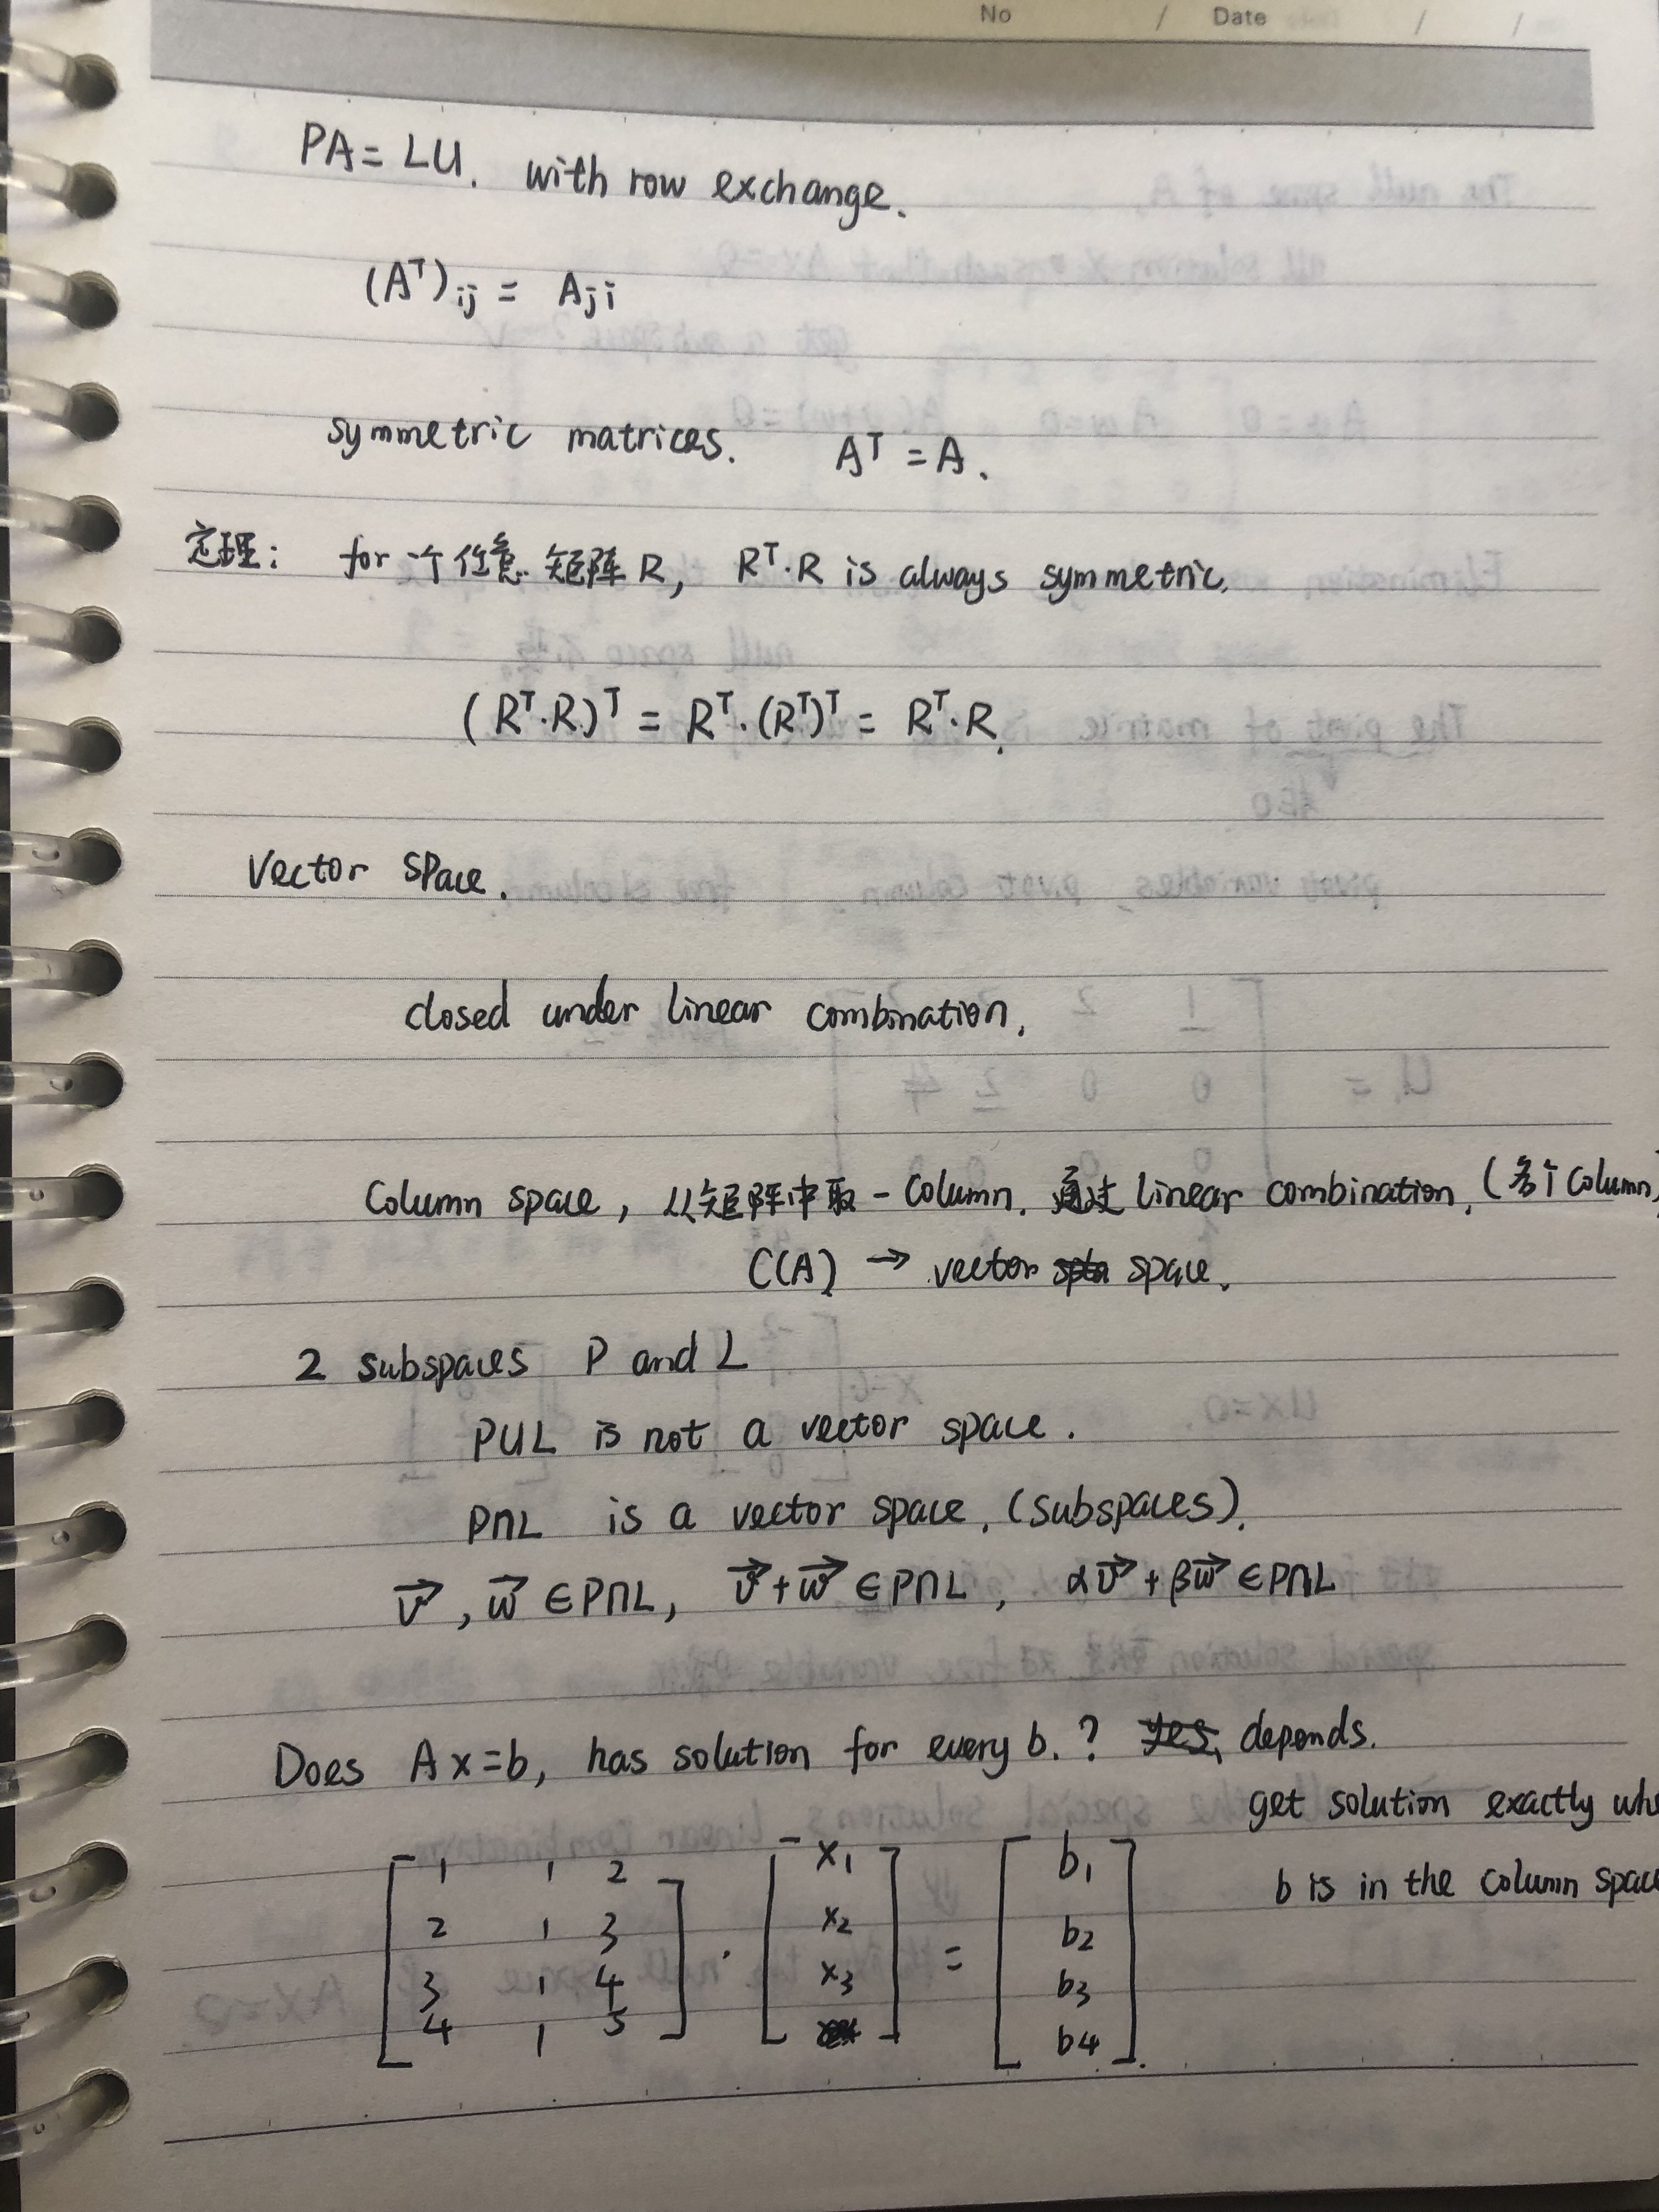 No / Date / /
PA = LU. with row exchange.
(Aᵀ)ij = Aji
symmetric matrices. Aᵀ = A.
定理: for 一个 任意 矩阵 R, Rᵀ·R is always symmetric.
(Rᵀ·R)ᵀ = Rᵀ·(Rᵀ)ᵀ = Rᵀ·R.
Vector space.
closed under linear combination.
Column space, 从矩阵中取一 column. 通过 linear combination. (多个 column)
C(A) → vector space.
2 subspaces P and L
P∪L is not a vector space.
P∩L is a vector space. (subspaces).
v⃗, w⃗ ∈ P∩L, v⃗+w⃗ ∈ P∩L, αv⃗+βw⃗ ∈ P∩L
Does Ax=b, has solution for every b.? yes, depends.
get solution exactly whe
b is in the column space
1 1 2 x1 b1
2 1 3 x2 b2
3 1 4 · x3 = b3
4 1 5 b4